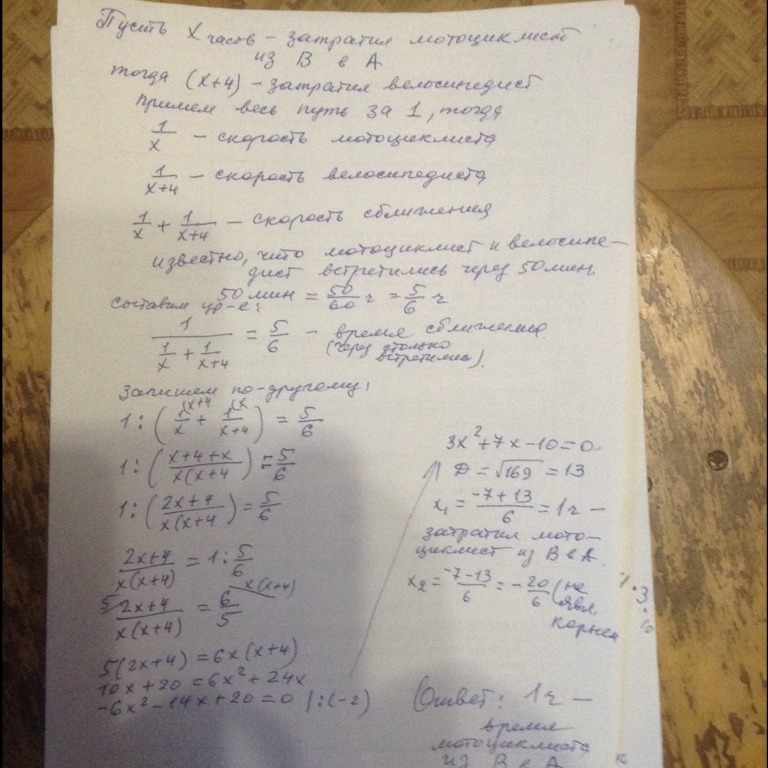 Пусть x часов – затратил мотоциклист
из В в А
тогда (x+4) – затратил велосипедист
Примем весь путь за 1, тогда
1/x – скорость мотоциклиста
1/(x+4) – скорость велосипедиста
1/x + 1/(x+4) – скорость сближения
известно, что мотоциклист и велосипе–
дист встретились через 50 мин.
50 мин = 50/60 ч = 5/6 ч
составим ур-е:
1/(1/x + 1/(x+4)) = 5/6 – время сближения
(через столько
встретились).
Запишем по-другому:
1 : (1/x (x+4 + 1/(x+4) (x) = 5/6
1 : ((x+4+x)/(x(x+4)) = 5/6
1 : ((2x+4)/(x(x+4)) = 5/6
(2x+4)/(x(x+4)) = 1 : 5/6
5 (2x+4)/(x(x+4)) = 6/5 x(x+4)
5(2x+4) = 6x(x+4)
10x + 20 = 6x² + 24x
-6x² - 14x + 20 = 0 | : (-2)
3x² + 7x - 10 = 0
D = √169 = 13
x₁ = (-7+13)/6 = 1 ч –
затратил мото–
циклист из В в А.
x₂ = (-7-13)/6 = -20/6 (не
явл
корнем
Ответ: 1 ч –
время
мотоциклиста
из В в А